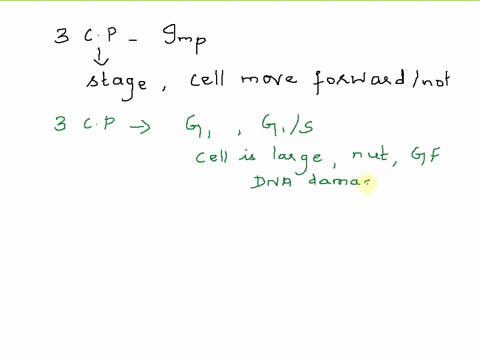 3 C.P - Imp
↓
stage, cell move forward/not
3 C.P → G1, G1/S
cell is large, nut, GF
DNA damag